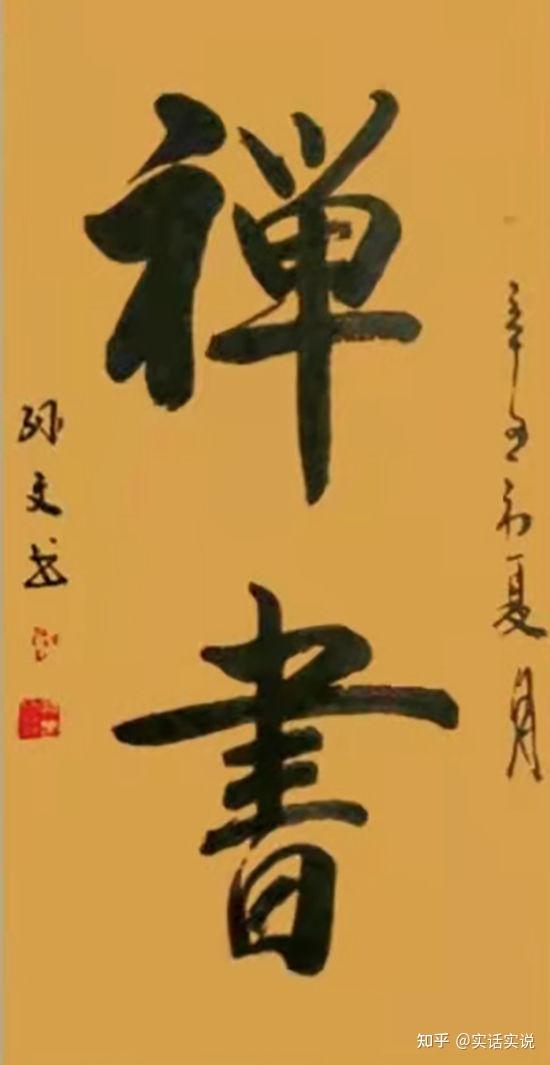 辛丑初夏月
禅書
孙文书
知乎 @实话实说